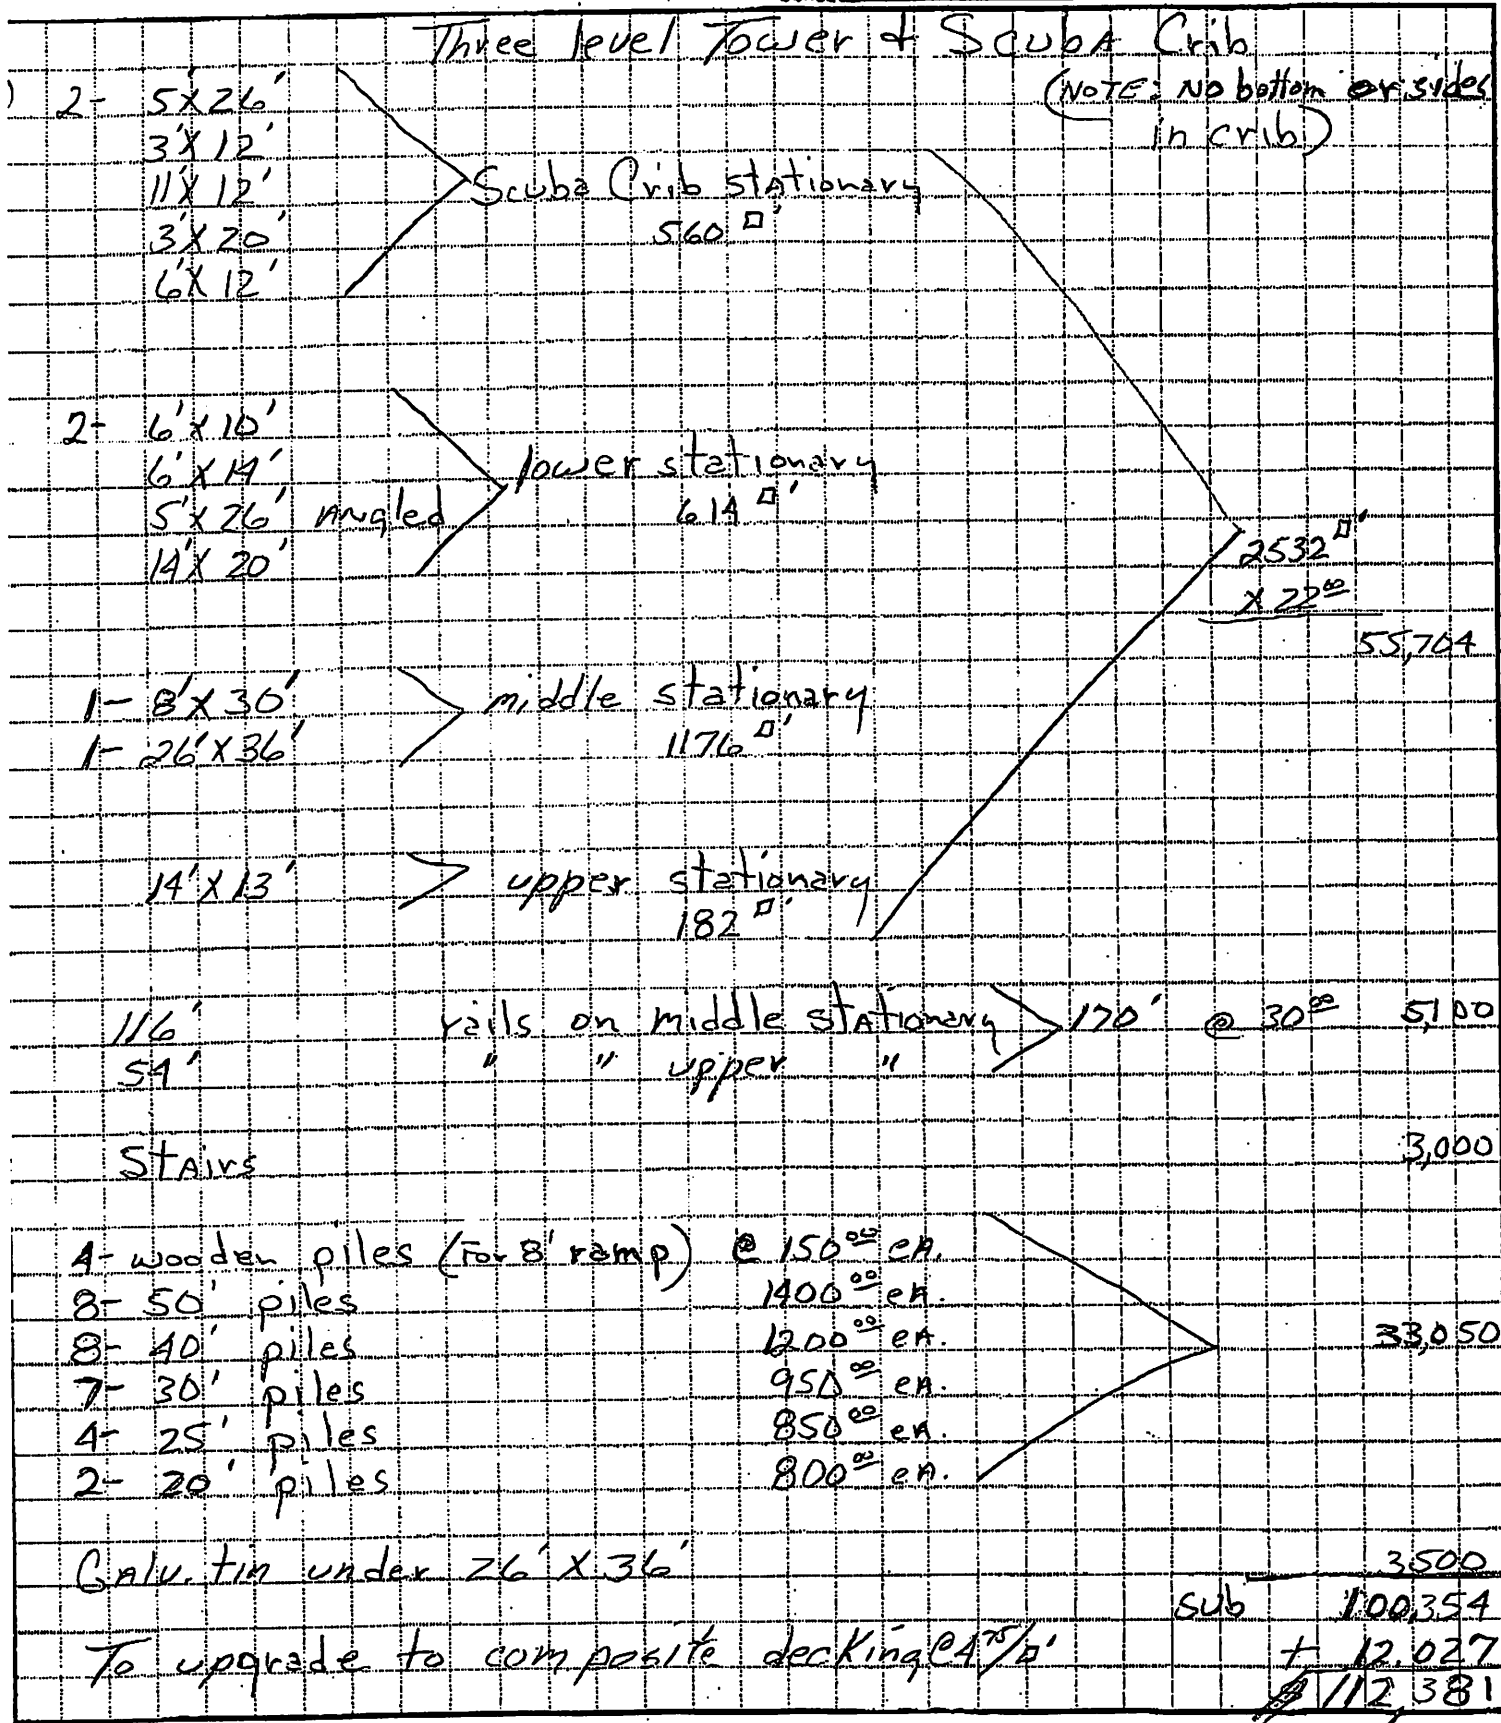 Three level Tower & Scuba Crib
(NOTE: No bottom or sides
in crib)
2- 5'X26'
3'X12'
11'X12'
3'X20'
6'X12'
Scuba Crib stationary
560 □'
2- 6'X10'
6'X14'
5'X26' Angled
14'X20'
lower stationary
614 □'
2532 □'
X 22.00
55,704
1- 8'X30'
1- 26'X36'
middle stationary
1176 □'
14'X13'
upper stationary
182 □'
116' rails on middle stationary 170' @ 30.00 5,100
54' " " upper "
Stairs 3,000
4- wooden piles (For 8' ramp) @ 150.00 eA.
8- 50' piles 1400.00 eA.
8- 40' piles 1200.00 eA. 33,050
7- 30' piles 950.00 eA.
4- 25' piles 850.00 eA.
2- 20' piles 800.00 eA.
GAlv. tin under 26' X 36' 3500
sub 100,354
To upgrade to composite decking @ 4.75/□' + 12,027
112,381